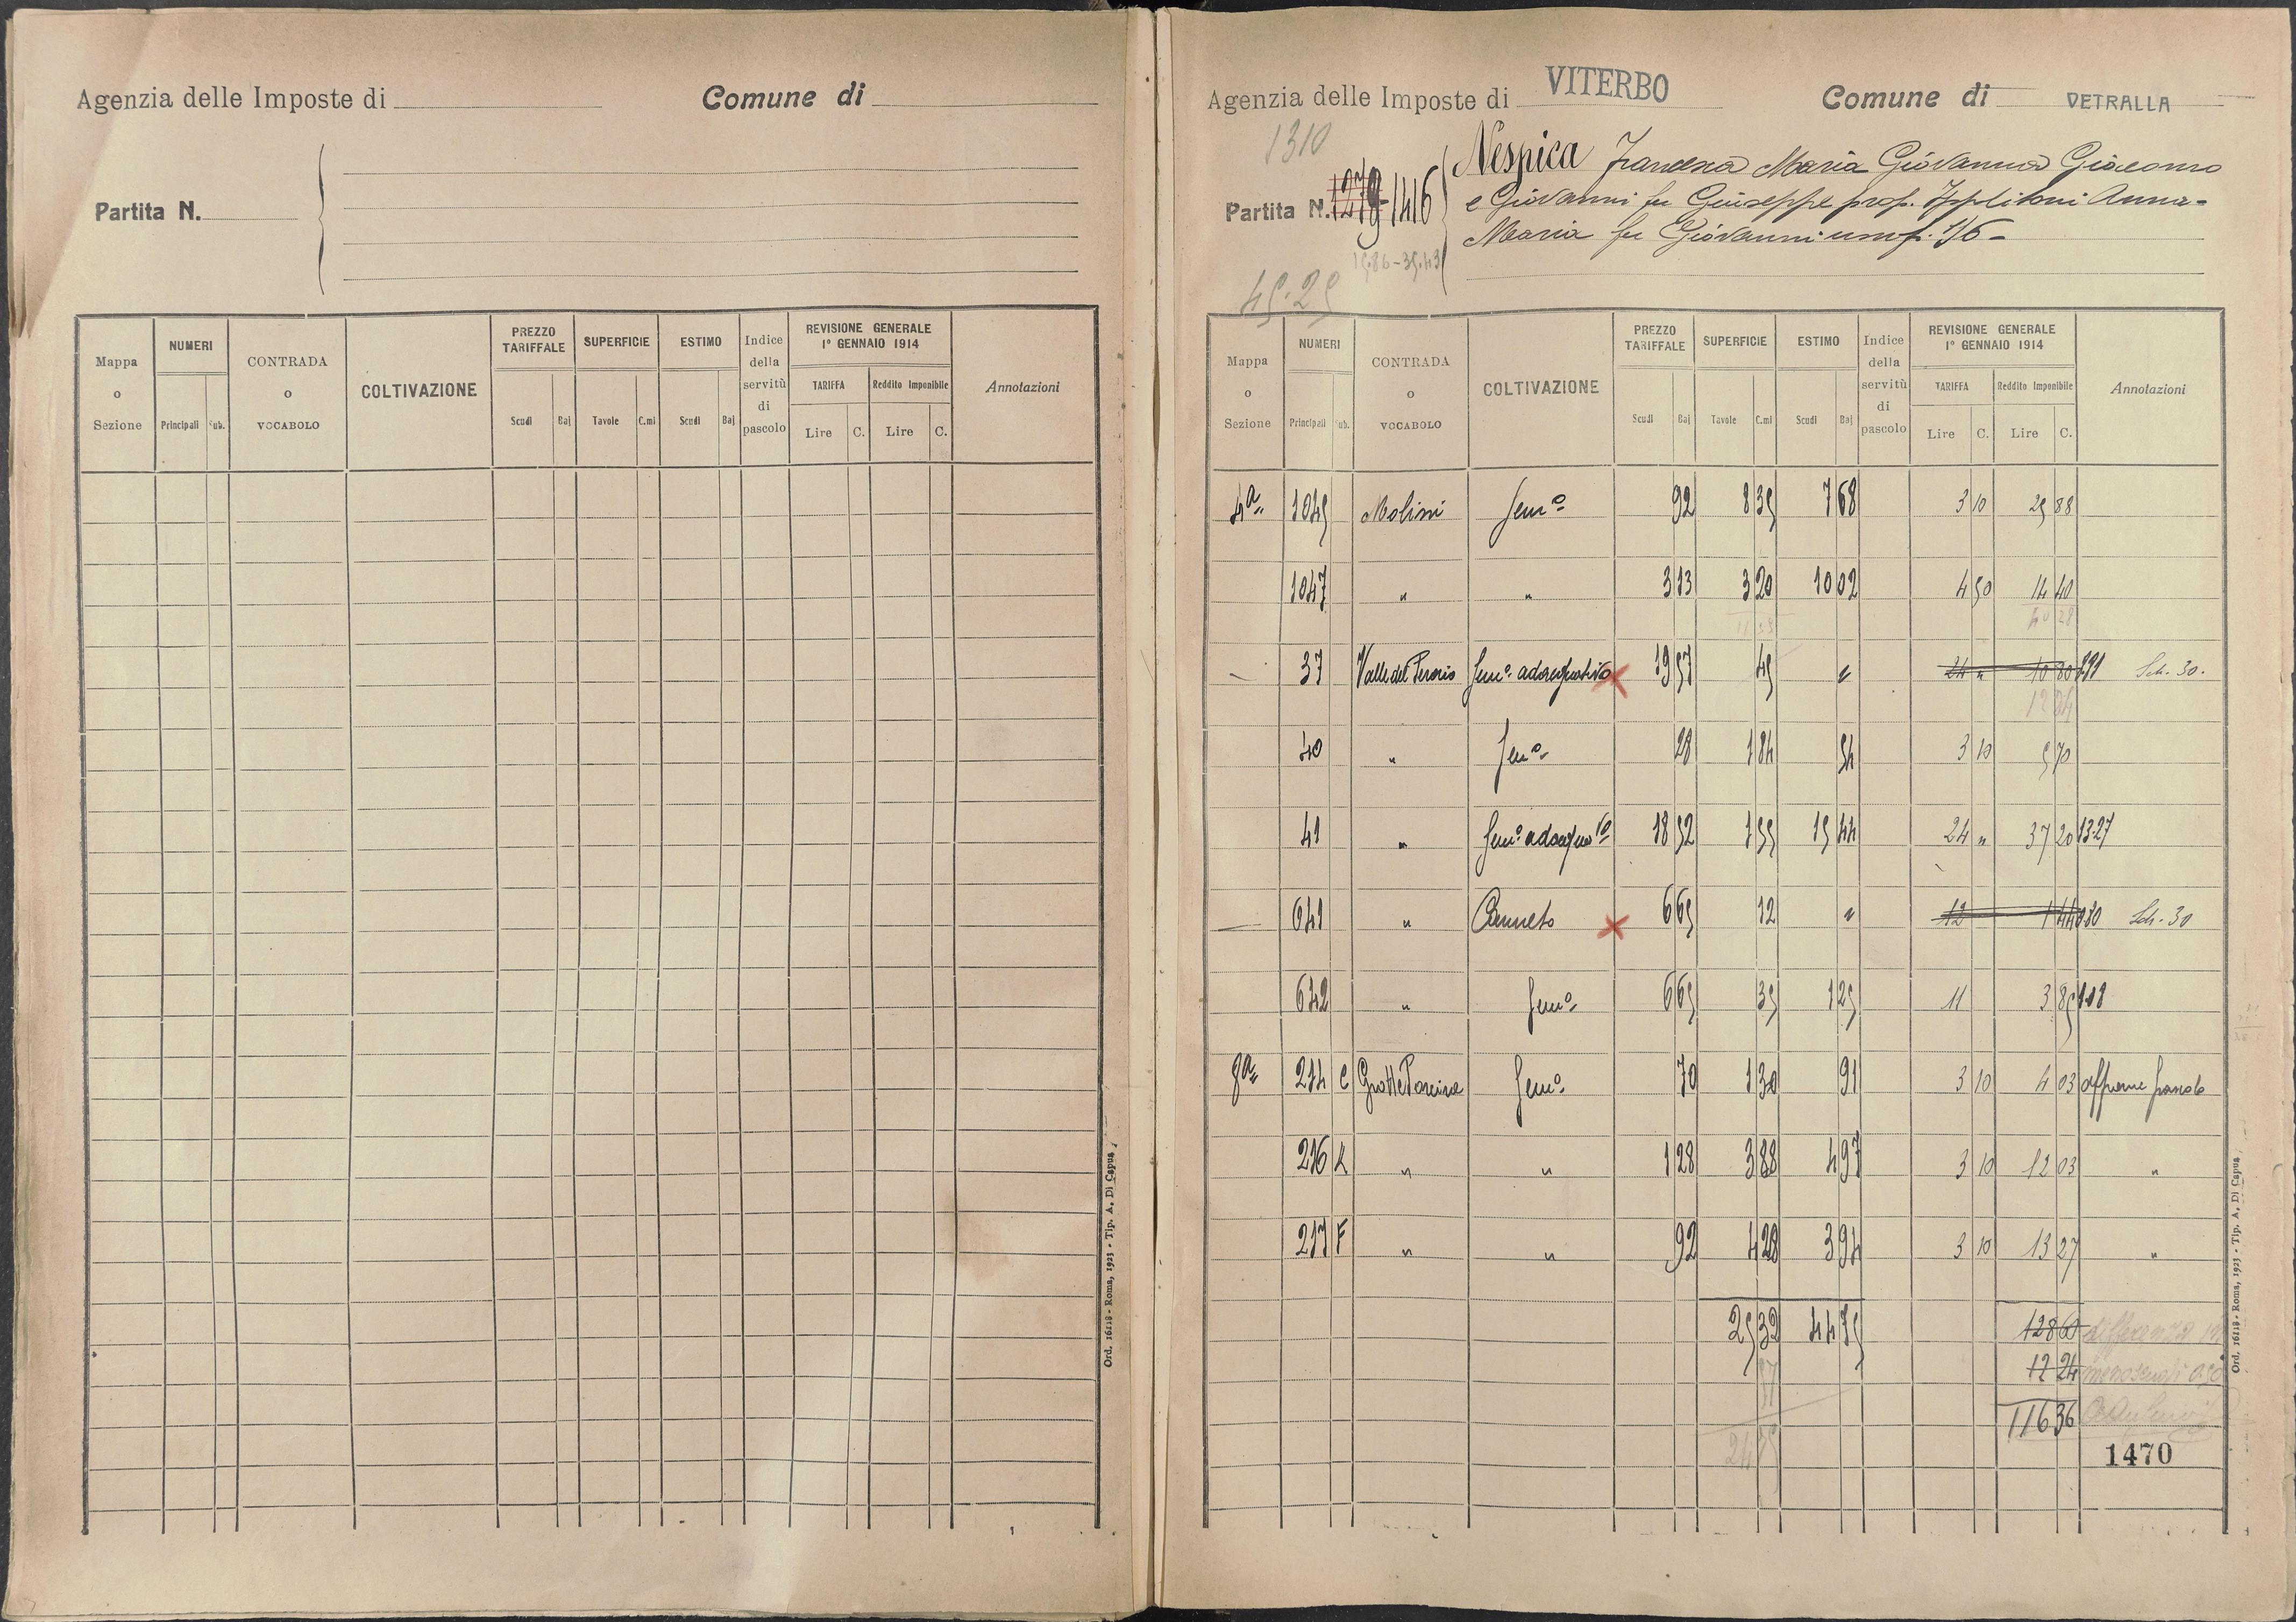 Agenzia delle Imposte di
Comune di
Partita N.
Mappa o Sezione
NUMERI
Principali
Sub.
CONTRADA o VOCABOLO
COLTIVAZIONE
PREZZO TARIFFALE
Scudi
Baj
SUPERFICIE
Tavole
C.mi
ESTIMO
Scudi
Baj
Indice della servitù di pascolo
REVISIONE GENERALE 1° GENNAIO 1914
TARIFFA
Reddito Imponibile
Lire
C.
Lire
C.
Annotazioni
Ord. 16118 - Roma, 1923 - Tip. A. Di Capua
Agenzia delle Imposte di VITERBO
Comune di VETRALLA
1310
Partita N. 1279 - 1416
Nespica Francesca Maria Giovanna Giacomo
e Giovanni fu Giuseppe prop. Ippolitoni Anna-
Maria fu Giovanni usuf. 1/6 -
15.86 - 35.43
45.25
Mappa o Sezione
NUMERI
Principali
Sub.
CONTRADA o VOCABOLO
COLTIVAZIONE
PREZZO TARIFFALE
Scudi
Baj
SUPERFICIE
Tavole
C.mi
ESTIMO
Scudi
Baj
Indice della servitù di pascolo
REVISIONE GENERALE 1° GENNAIO 1914
TARIFFA
Reddito Imponibile
Lire
C.
Lire
C.
Annotazioni
4a 1045 Molini Semo 92 8 35 7 68 3 10 25 88
1047 " " 3 13 3 20 10 02 4 50 14 40
40 28
37 Valle del Semo adacquativo 19 57 45 " 24 " 10 80 Sch. 30.
12 24
40 " Semo 28 1 84 54 3 10 5 70
41 " Semo adacquato 18 52 1 55 15 44 24 " 37 20 13.27
641 " Canneto 6 65 12 " 12 1 44 Sch. 30
642 " Semo 6 65 35 1 25 11 3 85
8a 214 C Grotte Porcina Semo 70 1 30 91 3 10 4 03 affrane pascolo
216 K " " 1 28 3 88 4 97 3 10 12 03 "
217 F " " 92 4 28 3 94 3 10 13 27 "
25 32 44 75 128 60 differenza in
57 12 24
24 75 116 36
1470
Ord. 16118 - Roma, 1923 - Tip. A. Di Capua